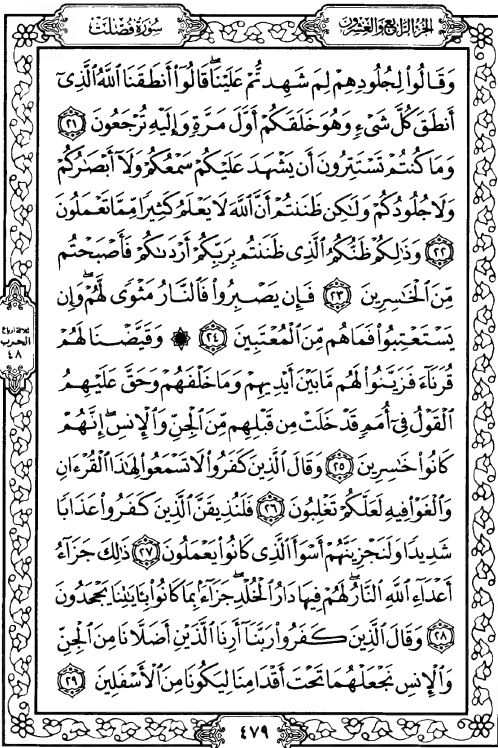 سُورَةُ فُصِّلَتْ
الجُزْءُ الرَّابِعُ وَالعِشْرُونَ
وَقَالُوا۟ لِجُلُودِهِمْ لِمَ شَهِدتُّمْ عَلَيْنَا ۖ قَالُوٓا۟ أَنطَقَنَا ٱللَّهُ ٱلَّذِىٓ
أَنطَقَ كُلَّ شَىْءٍ وَهُوَ خَلَقَكُمْ أَوَّلَ مَرَّةٍ وَإِلَيْهِ تُرْجَعُونَ ٢١
وَمَا كُنتُمْ تَسْتَتِرُونَ أَن يَشْهَدَ عَلَيْكُمْ سَمْعُكُمْ وَلَآ أَبْصَـٰرُكُمْ
وَلَا جُلُودُكُمْ وَلَـٰكِن ظَنَنتُمْ أَنَّ ٱللَّهَ لَا يَعْلَمُ كَثِيرًا مِّمَّا تَعْمَلُونَ
٢٢ وَذَٰلِكُمْ ظَنُّكُمُ ٱلَّذِى ظَنَنتُم بِرَبِّكُمْ أَرْدَىٰكُمْ فَأَصْبَحْتُم
مِّنَ ٱلْخَـٰسِرِينَ ٢٣ فَإِن يَصْبِرُوا۟ فَٱلنَّارُ مَثْوًى لَّهُمْ ۖ وَإِن
يَسْتَعْتِبُوا۟ فَمَا هُم مِّنَ ٱلْمُعْتَبِينَ ٢٤ ۞ وَقَيَّضْنَا لَهُمْ
قُرَنَآءَ فَزَيَّنُوا۟ لَهُم مَّا بَيْنَ أَيْدِيهِمْ وَمَا خَلْفَهُمْ وَحَقَّ عَلَيْهِمُ
ٱلْقَوْلُ فِىٓ أُمَمٍ قَدْ خَلَتْ مِن قَبْلِهِم مِّنَ ٱلْجِنِّ وَٱلْإِنسِ ۖ إِنَّهُمْ
كَانُوا۟ خَـٰسِرِينَ ٢٥ وَقَالَ ٱلَّذِينَ كَفَرُوا۟ لَا تَسْمَعُوا۟ لِهَـٰذَا ٱلْقُرْءَانِ
وَٱلْغَوْا۟ فِيهِ لَعَلَّكُمْ تَغْلِبُونَ ٢٦ فَلَنُذِيقَنَّ ٱلَّذِينَ كَفَرُوا۟ عَذَابًا
شَدِيدًا وَلَنَجْزِيَنَّهُمْ أَسْوَأَ ٱلَّذِى كَانُوا۟ يَعْمَلُونَ ٢٧ ذَٰلِكَ جَزَآءُ
أَعْدَآءِ ٱللَّهِ ٱلنَّارُ ۖ لَهُمْ فِيهَا دَارُ ٱلْخُلْدِ ۖ جَزَآءًۢ بِمَا كَانُوا۟ بِـَٔايَـٰتِنَا يَجْحَدُونَ
٢٨ وَقَالَ ٱلَّذِينَ كَفَرُوا۟ رَبَّنَآ أَرِنَا ٱلَّذَيْنِ أَضَلَّانَا مِنَ ٱلْجِنِّ
وَٱلْإِنسِ نَجْعَلْهُمَا تَحْتَ أَقْدَامِنَا لِيَكُونَا مِنَ ٱلْأَسْفَلِينَ ٢٩
ثلاثة أرباع
الحزب
٤٨
٤٧٩